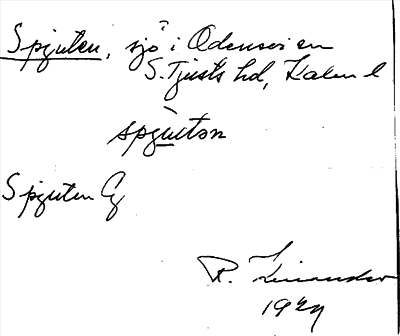 Spjuten, sjö i Odensvi sn
S. Tjusts hd, Kalm l
spju̲tən
Spjuten Gg
R. Linander
1927